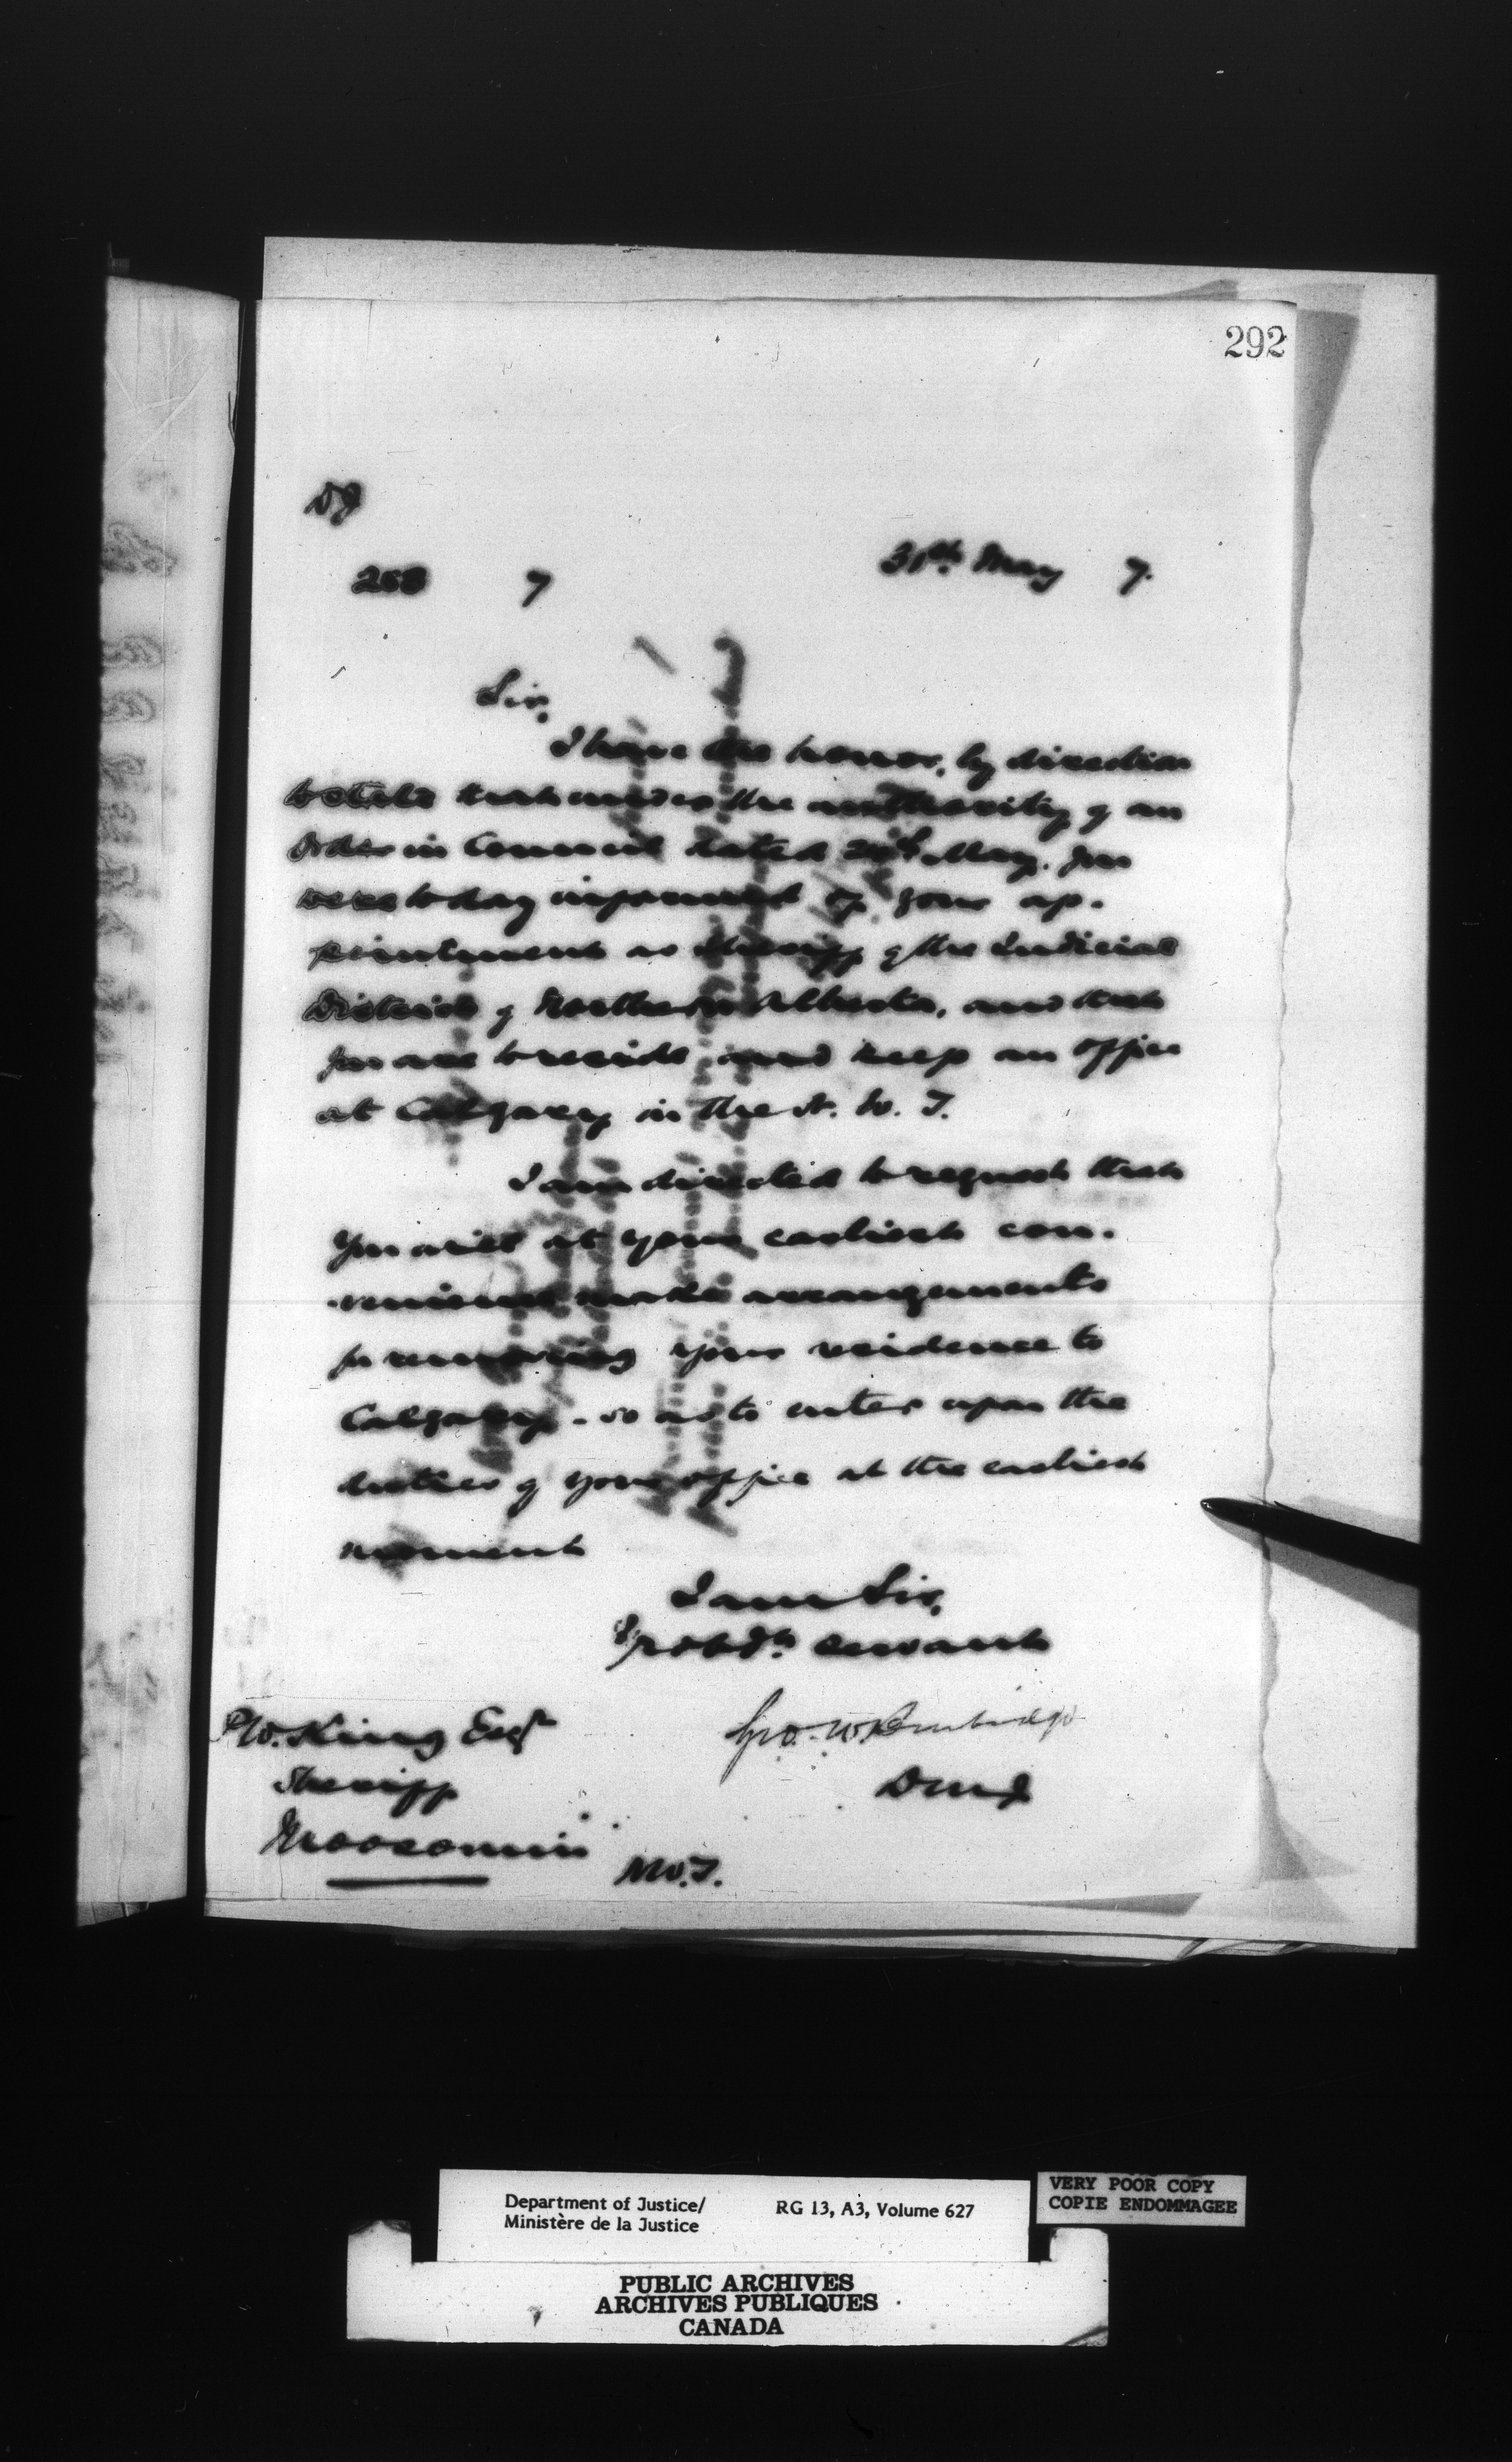 292
DJ
258 7 31st May 7.
Sir,
I have the honor, by direction
to state that under the authority of an
Order in Council dated May. you
were today informed of your ap-
pointment as Sheriff of the Judicial
District of Northern Alberta, and that
you are to reside and keep an office
at Calgary in the N. W. T.
I am directed to request that
you will at your earliest con-
venience make arrangements
for removing your residence to
Calgary - so as to enter upon the
duties of your office at the earliest
moment
I am Sir,
Yr obdt. servant
Geo. W. Burbidge
DMJ
P W. King Esqr
Sheriff
Moosomin
N.W.T.
Department of Justice/ RG 13, A3, Volume 627
Ministère de la Justice
VERY POOR COPY
COPIE ENDOMMAGEE
PUBLIC ARCHIVES
ARCHIVES PUBLIQUES
CANADA